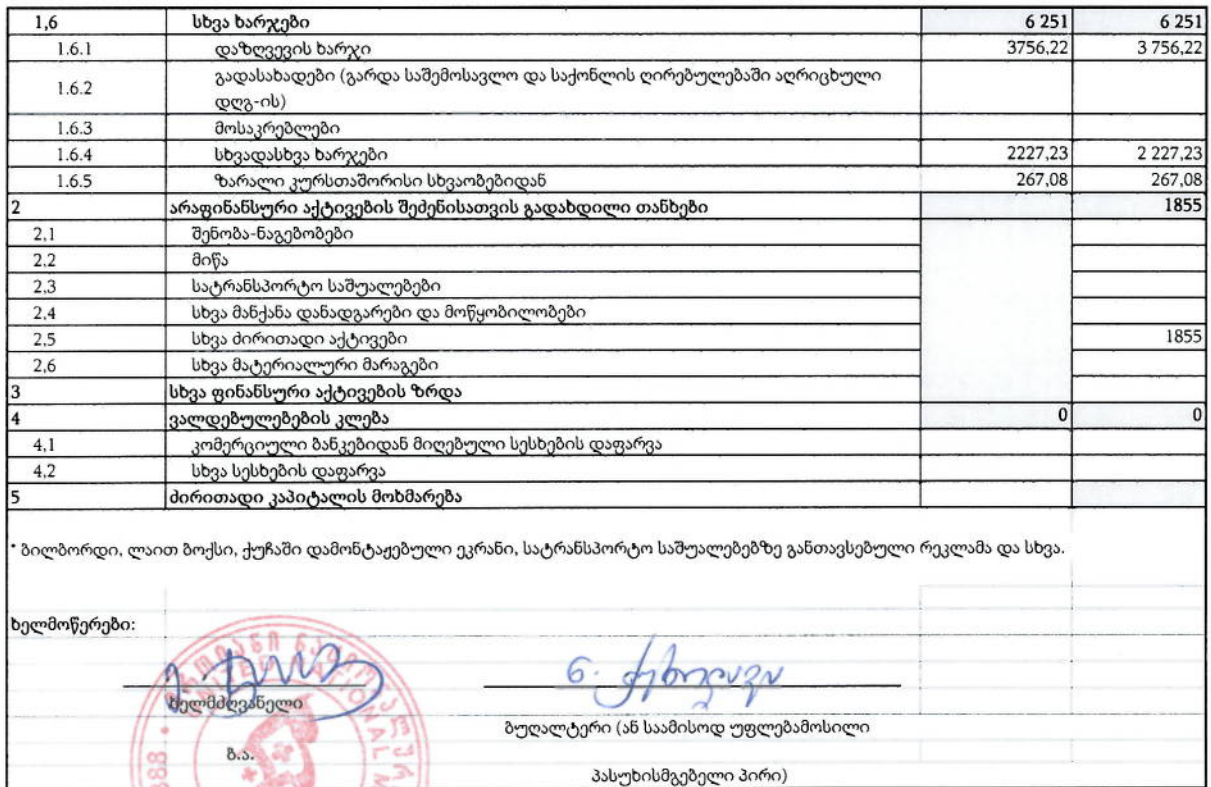 1,6 სხვა ხარჯები 6 251 6 251
1.6.1 დაზღვევის ხარჯი 3756,22 3 756,22
1.6.2 გადასახადები (გარდა საშემოსავლო და საქონლის ღირებულებაში აღრიცხული
დღგ-ის)
1.6.3 მოსაკრებლები
1.6.4 სხვადასხვა ხარჯები 2227,23 2 227,23
1.6.5 ზარალი კურსთაშორისი სხვაობებიდან 267,08 267,08
2 არაფინანსური აქტივების შეძენისათვის გადახდილი თანხები 1855
2,1 შენობა-ნაგებობები
2,2 მიწა
2,3 სატრანსპორტო საშუალებები
2,4 სხვა მანქანა დანადგარები და მოწყობილობები
2,5 სხვა ძირითადი აქტივები 1855
2,6 სხვა მატერიალური მარაგები
3 სხვა ფინანსური აქტივების ზრდა
4 ვალდებულებების კლება 0 0
4,1 კომერციული ბანკებიდან მიღებული სესხების დაფარვა
4,2 სხვა სესხების დაფარვა
5 ძირითადი კაპიტალის მოხმარება
* ბილბორდი, ლაით ბოქსი, ქუჩაში დამონტაჟებული ეკრანი, სატრანსპორტო საშუალებებზე განთავსებული რეკლამა და სხვა.
ხელმოწერები:
ხელმძღვანელი
ბუღალტერი (ან საამისოდ უფლებამოსილი
ბ.ა.
პასუხისმგებელი პირი)